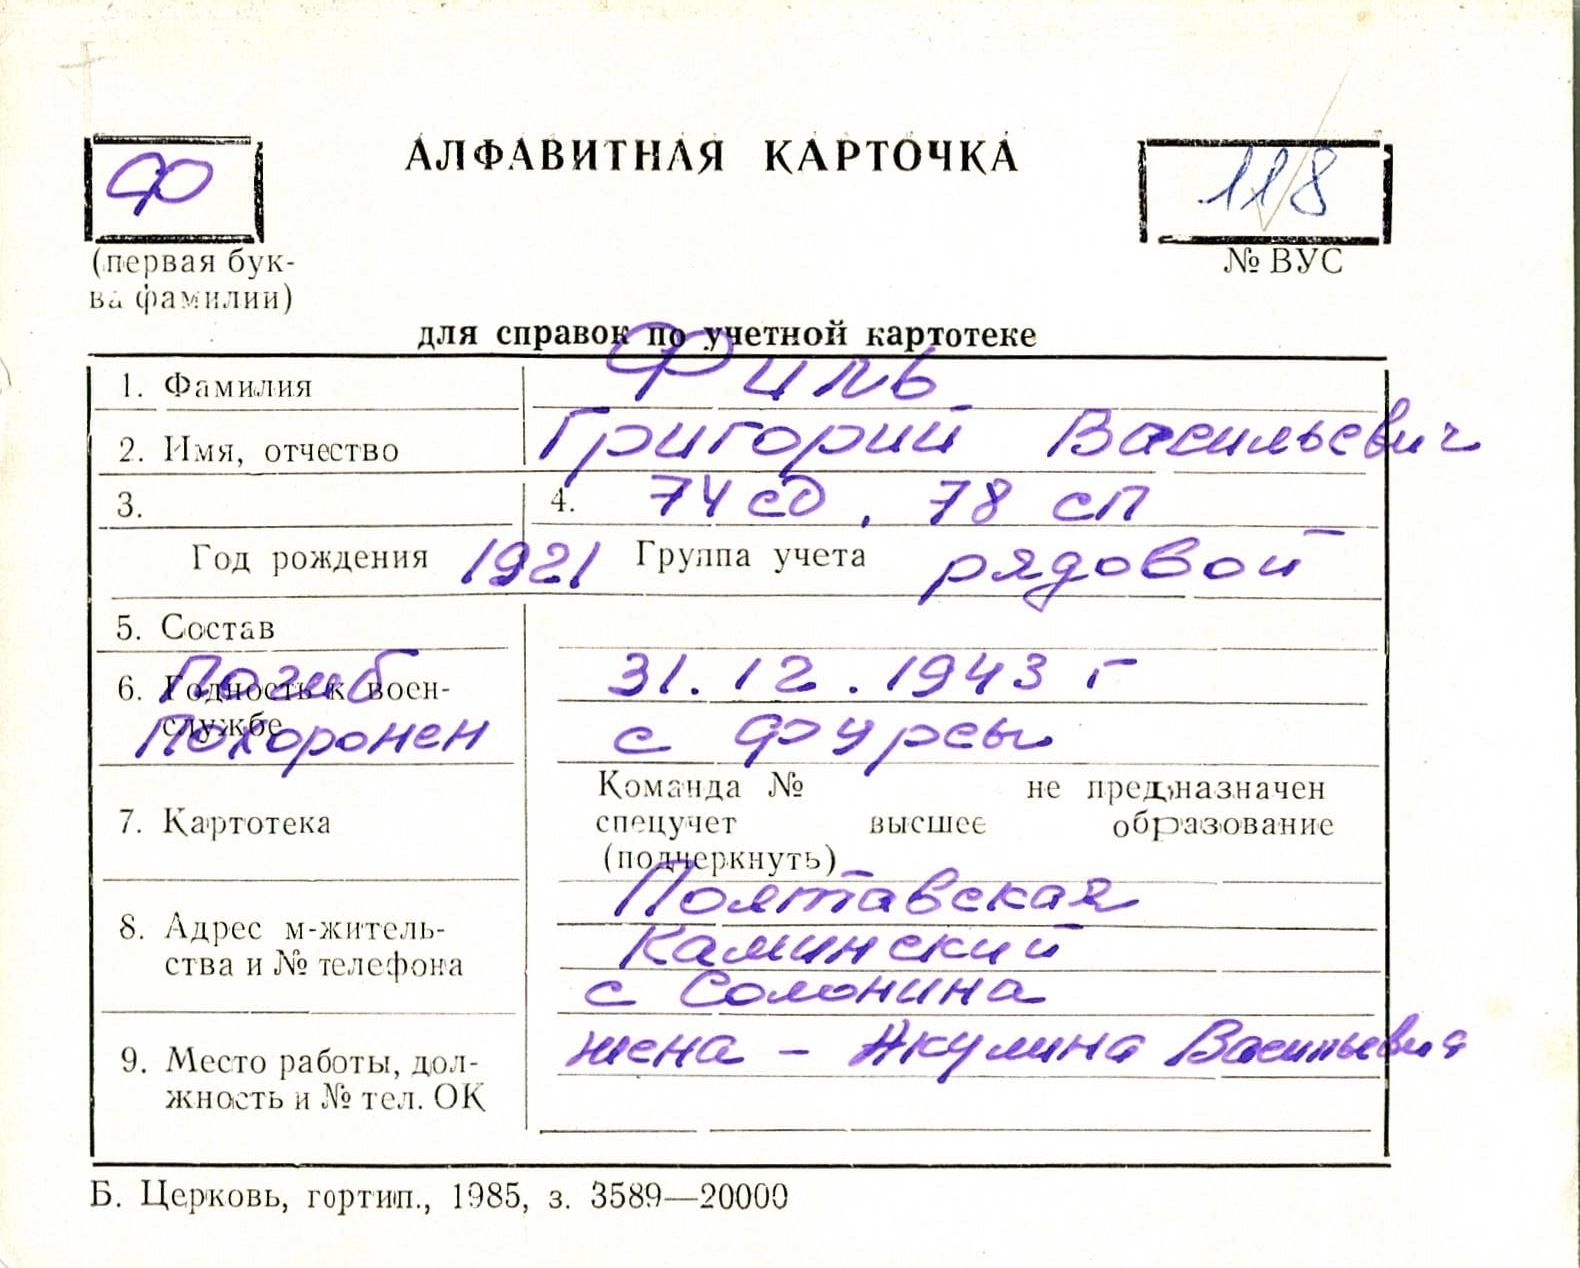 АЛФАВИТНАЯ КАРТОЧКА
Ф
118
(первая бук-
ва фамилии)
№ ВУС
для справок по учетной картотеке
1. Фамилия Филь
2. Имя, отчество Григорий Васильевич
3. 4. 74 сд, 78 сп
Год рождения 1921 Группа учета рядовой
5. Состав
6. Годность к воен-
службе
Погиб 31.12.1943 г
Похоронен с Фурсы
Команда № не предназначен
7. Картотека спецучет высшее образование
(подчеркнуть)
Полтавская
8. Адрес м-житель-
ства и № телефона
Каминский
с Солонина
9. Место работы, дол-
жность и № тел. ОК
жена – Акулина Васильевна
Б. Церковь, гортип., 1985, з. 3589—20000